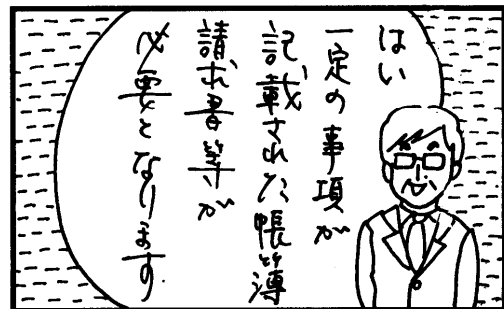 はい
一定の事項が
記載された帳簿
請求書等が
必要となります